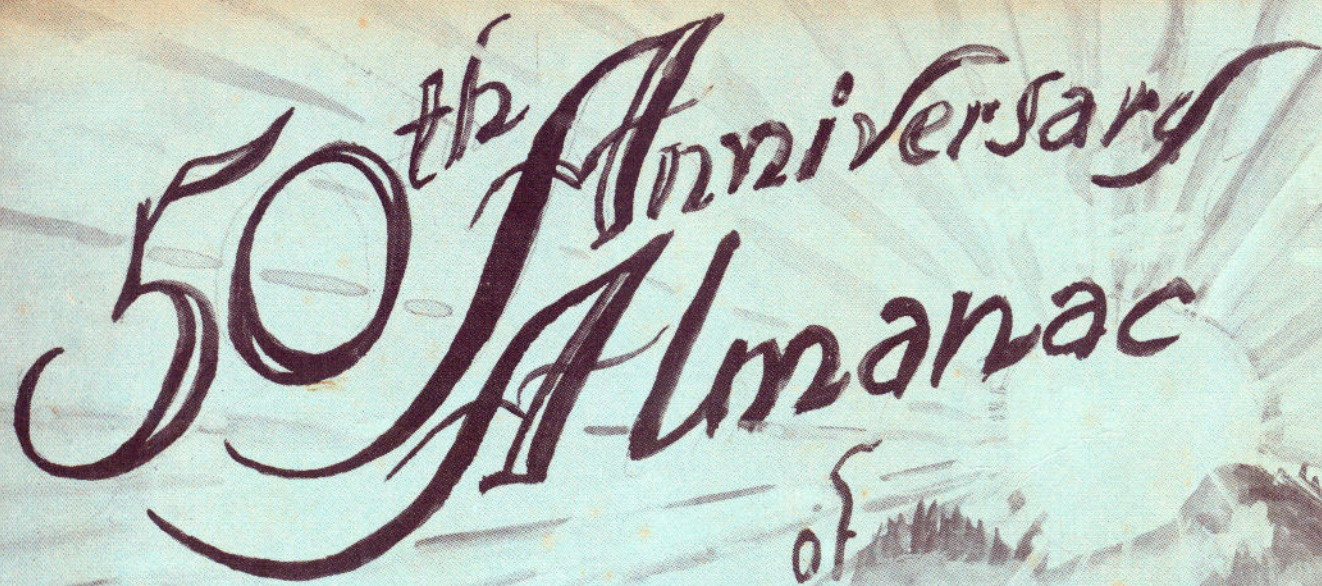 50th Anniversary
Almanac
of